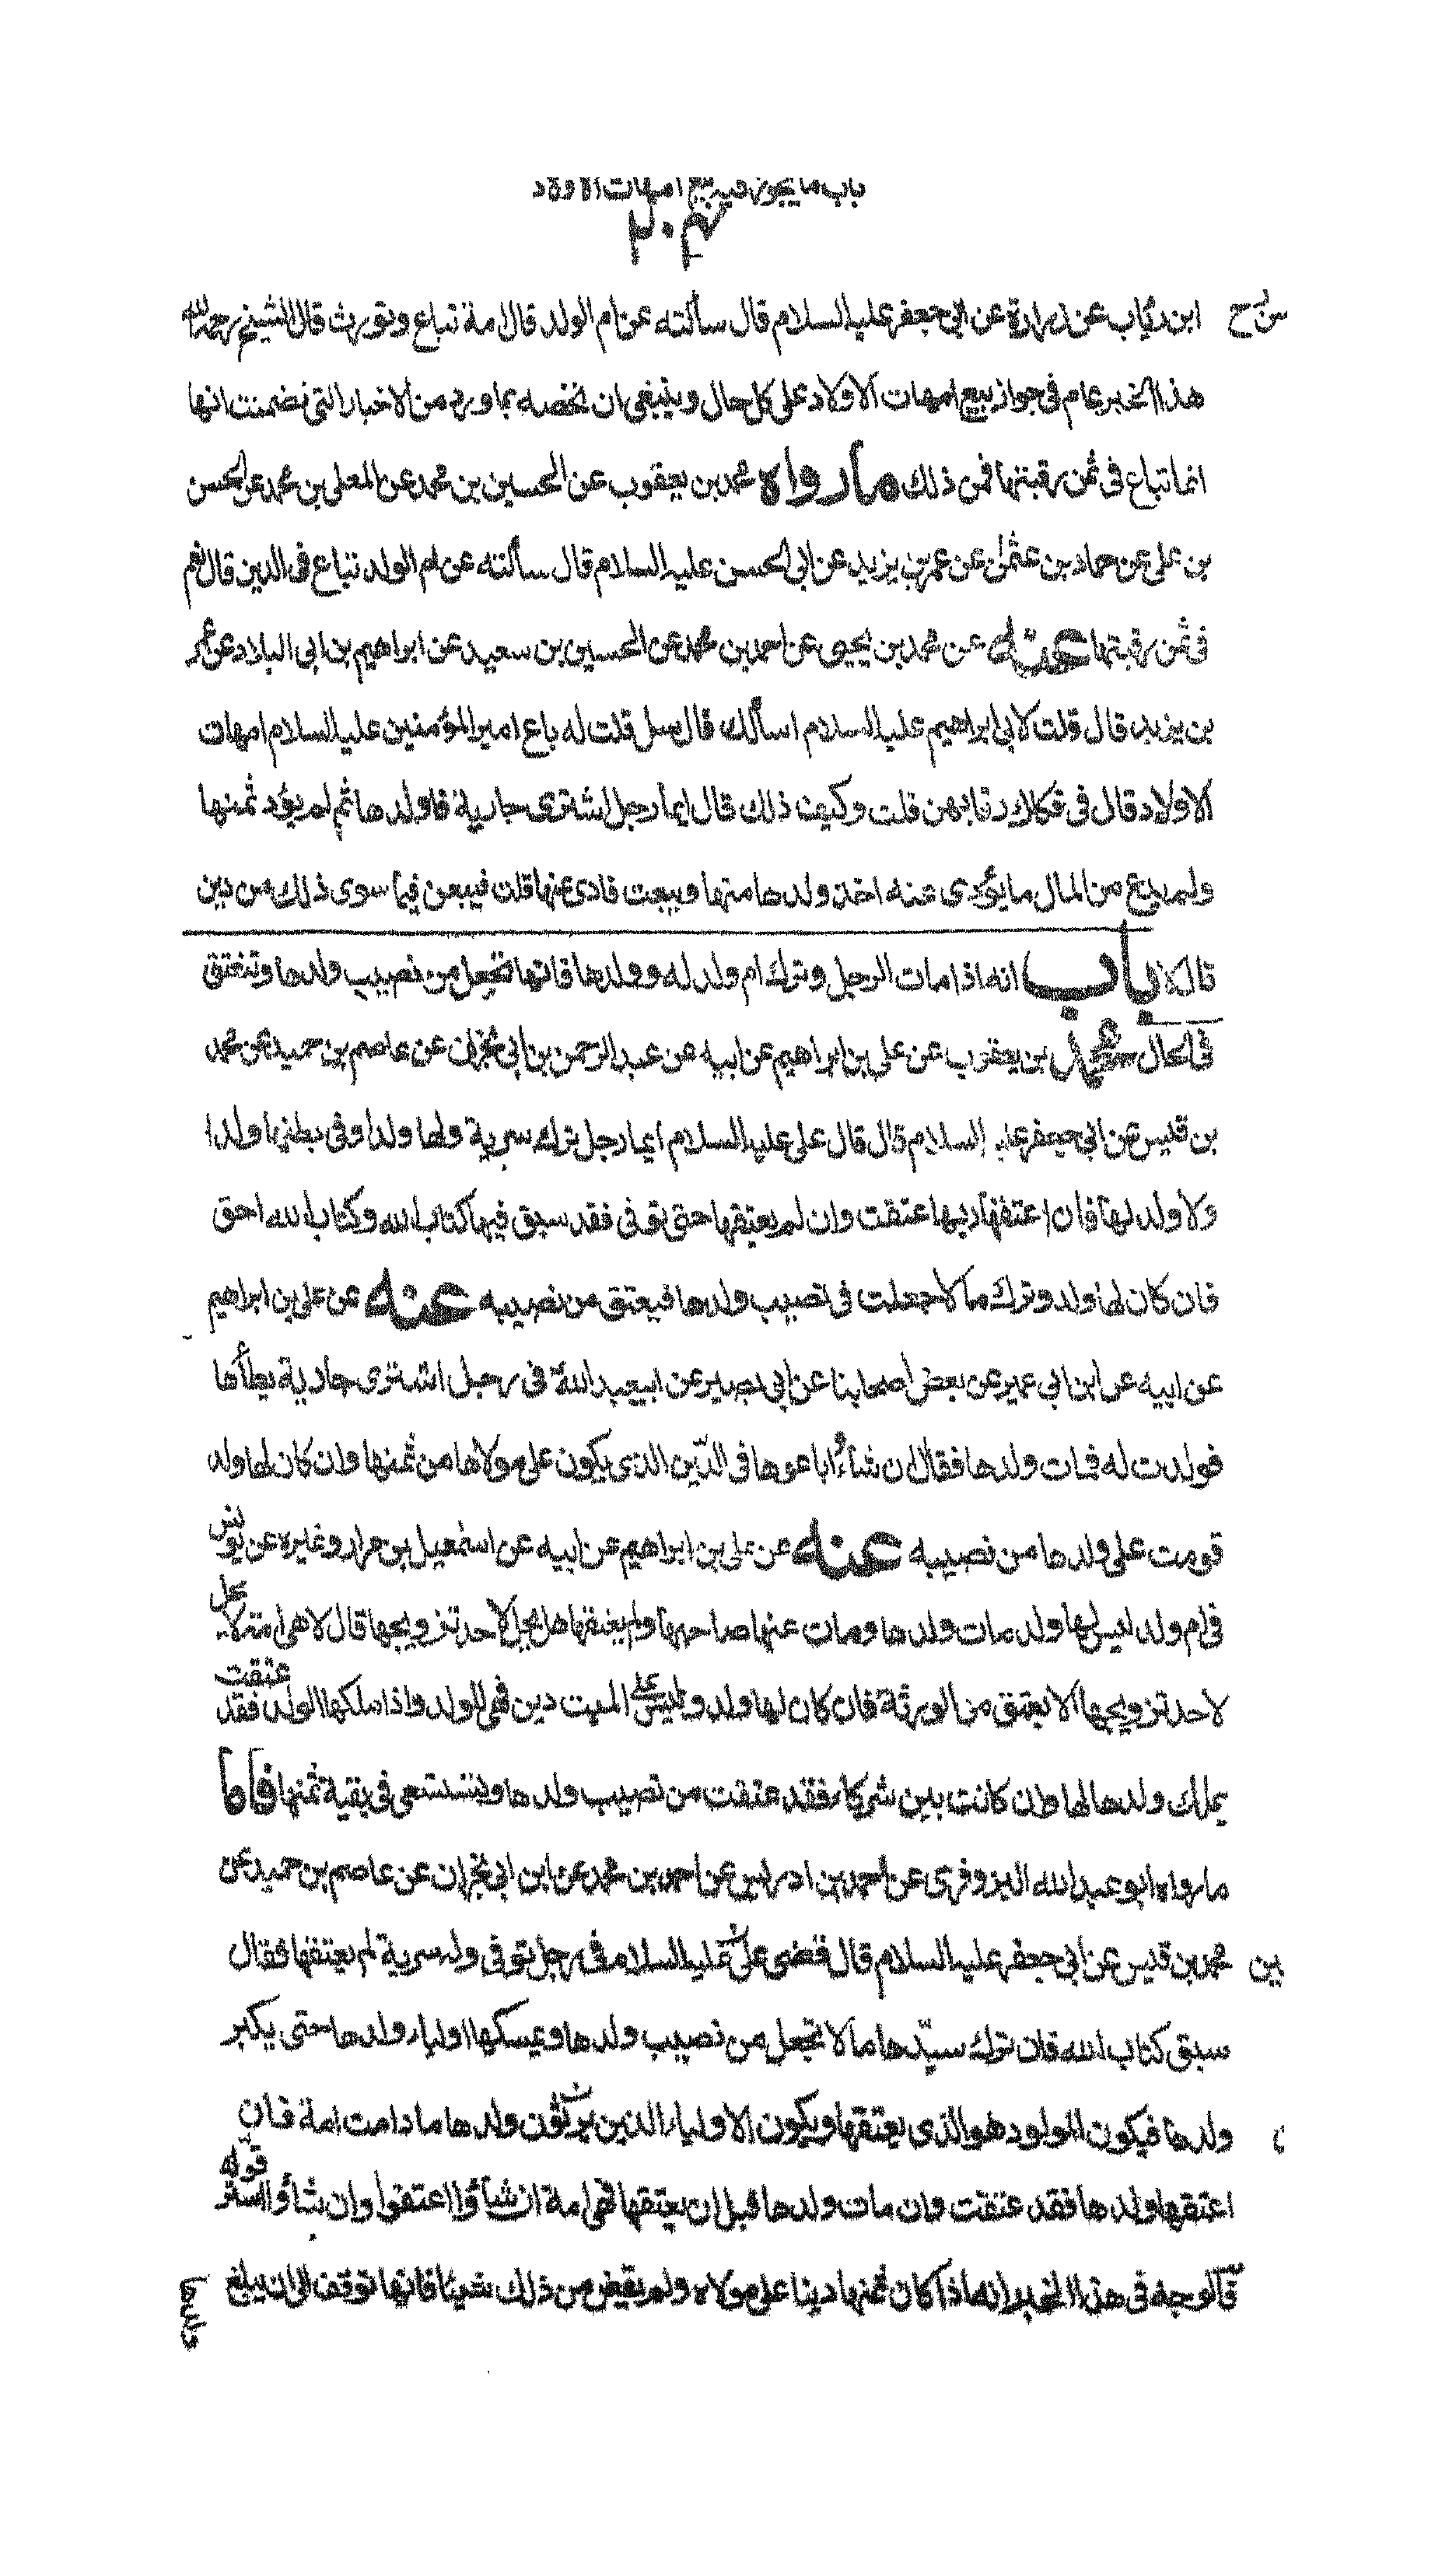 باب ما يجوز فيه بيع امهات الاولاد
ابن رئاب عن زرارة عن ابي جعفر عليه السلام قال سألته عن ام الولد قال امة تباع وتورث قال الشيخ رحمه الله
هذا الخبر عام في جواز بيع امهات الاولاد على كل حال وينبغي ان نخصه بما ورد من الاخبار التي تضمنت انها
انما تباع في ثمن رقبتها فمن ذلك ما رواه محمد بن يعقوب عن الحسين بن محمد عن المعلى بن محمد عن الحسن
بن علي عن حماد بن عثمن عن عمر بن يزيد عن ابي الحسن عليه السلام قال سألته عن ام الولد تباع في الدين قال نعم
في ثمن رقبتها عنه عن محمد بن يحيى عن احمد بن محمد عن الحسين بن سعيد عن ابراهيم بن ابي البلاد عن عمر
بن يزيد قال قلت لابي ابراهيم عليه السلام اسألك قال سل قلت له باع امير المؤمنين عليه السلام امهات
الاولاد قال في فكاك رقابهن قلت وكيف ذلك قال ايما رجل اشترى جارية فاولدها ثم لم يؤد ثمنها
ولم يدع من المال ما يؤدى عنه اخذ ولدها منها وبيعت فادى عنها قلت فيبعن فيما سوى ذلك من دين
قال لا باب انه اذا مات الرجل وترك ام ولد له وولدها فانها تجعل من نصيب ولدها وتنعتق
في الحال محمد بن يعقوب عن علي بن ابراهيم عن ابيه عن عبد الرحمن بن ابي نجران عن عاصم بن حميد عن محمد
بن قيس عن ابي جعفر عليه السلام قال قال علي عليه السلام ايما رجل ترك سرية ولها ولد او في بطنها ولد ا
ولا ولد لها فان اعتقها ربها اعتقت وان لم يعتقها حتى توفى فقد سبق فيها كتاب الله وكتاب الله احق
فان كان لها ولد وترك مالا جعلت في نصيب ولدها فيعتق من نصيبه عنه عن علي بن ابراهيم
عن ابيه عن ابن ابي عمير عن بعض اصحابنا عن ابي بصير عن ابي عبد الله في رجل اشترى جارية يطأها
فولدت له فمات ولدها فقال ان شاؤا باعوها في الدين الذي يكون على مولاها من ثمنها وان كان لها ولد
قومت على ولدها من نصيبه عنه عن علي بن ابراهيم عن ابيه عن اسمعيل بن مرار وغيره عن يونس
في ام ولد ليس لها ولد مات ولدها ومات عنها صاحبها ولم يعتقها هل يحل لاحد تزويجها قال لا هي امة لا يحل
لاحد تزويجها الا بعتق من الورثة فان كان لها ولد وليس على الميت دين فهي للولد واذا ملكها الولد فقد عتقت
بملك ولدها لها وان كانت بين شركاء فقد عتقت من نصيب ولدها وتستسعى في بقية ثمنها فاما
ما رواه ابو عبد الله البزوفري عن احمد بن ادريس عن احمد بن محمد عن ابن ابي نجران عن عاصم بن حميد عن
محمد بن قيس عن ابي جعفر عليه السلام قال قضى علي عليه السلام في رجل توفى وله سرية لم يعتقها فقال
سبق كتاب الله فان ترك سيدها مالا تجعل من نصيب ولدها ويمسكها اولياء ولدها حتى يكبر
ولدها فيكون المولود هو الذي يعتقها ويكون الاولياء الذين يرثون ولدها ما دامت امة فان
اعتقها ولدها فقد عتقت وان مات ولدها قبل ان يعتقها فهي امة ان شاؤا اعتقوا وان شاؤا استرقوا
فالوجه في هذا الخبر انه اذا كان ثمنها دينا على مولاه ولم يقض من ذلك شيئا فانها توقف الى ان يبلغ
ولدها